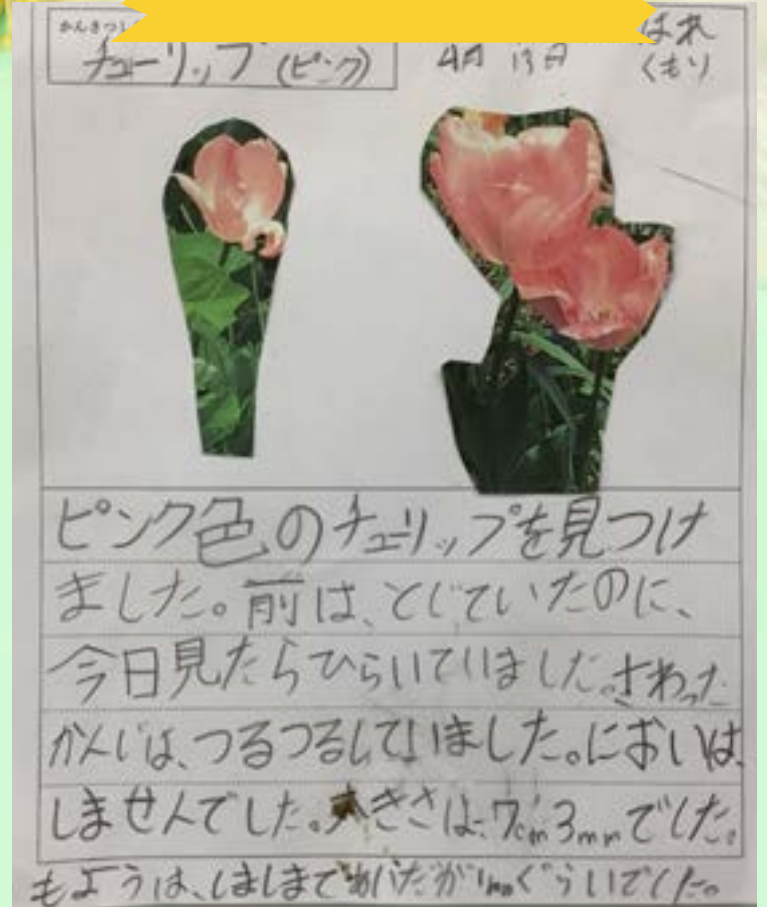 かんさつし
チューリップ(ピンク)
4月13日
はれ
くもり
ピンク色のチューリップを見つけ
ました。前は、とじていたのに、
今日見たらひらいていました。さわった
かんじは、つるつるしていました。においは、
しませんでした。大きさは、7cm3mmでした。
もようは、しましまで
ぐらいでした。